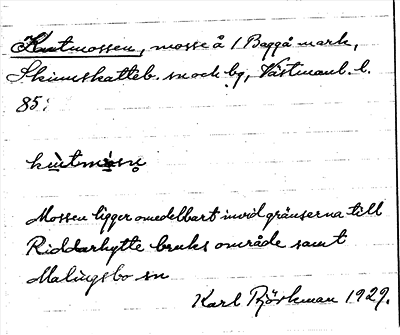 Knutmossen, mosse å 1 Baggå mark,
Skinnskatteb. sn och bg, Västmanl. l.
85:
Mossen ligger omedelbart invid gränserna till
Riddarhytte bruks område samt
Malingsbo sn
Karl Björkman 1929.